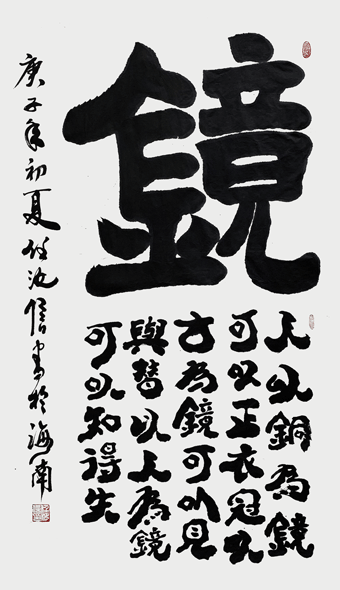 鏡
人以銅為鏡
可以正衣冠以
古為鏡可以見
興替以人為鏡
可以知得失
庚子年初夏任汝信書於海南